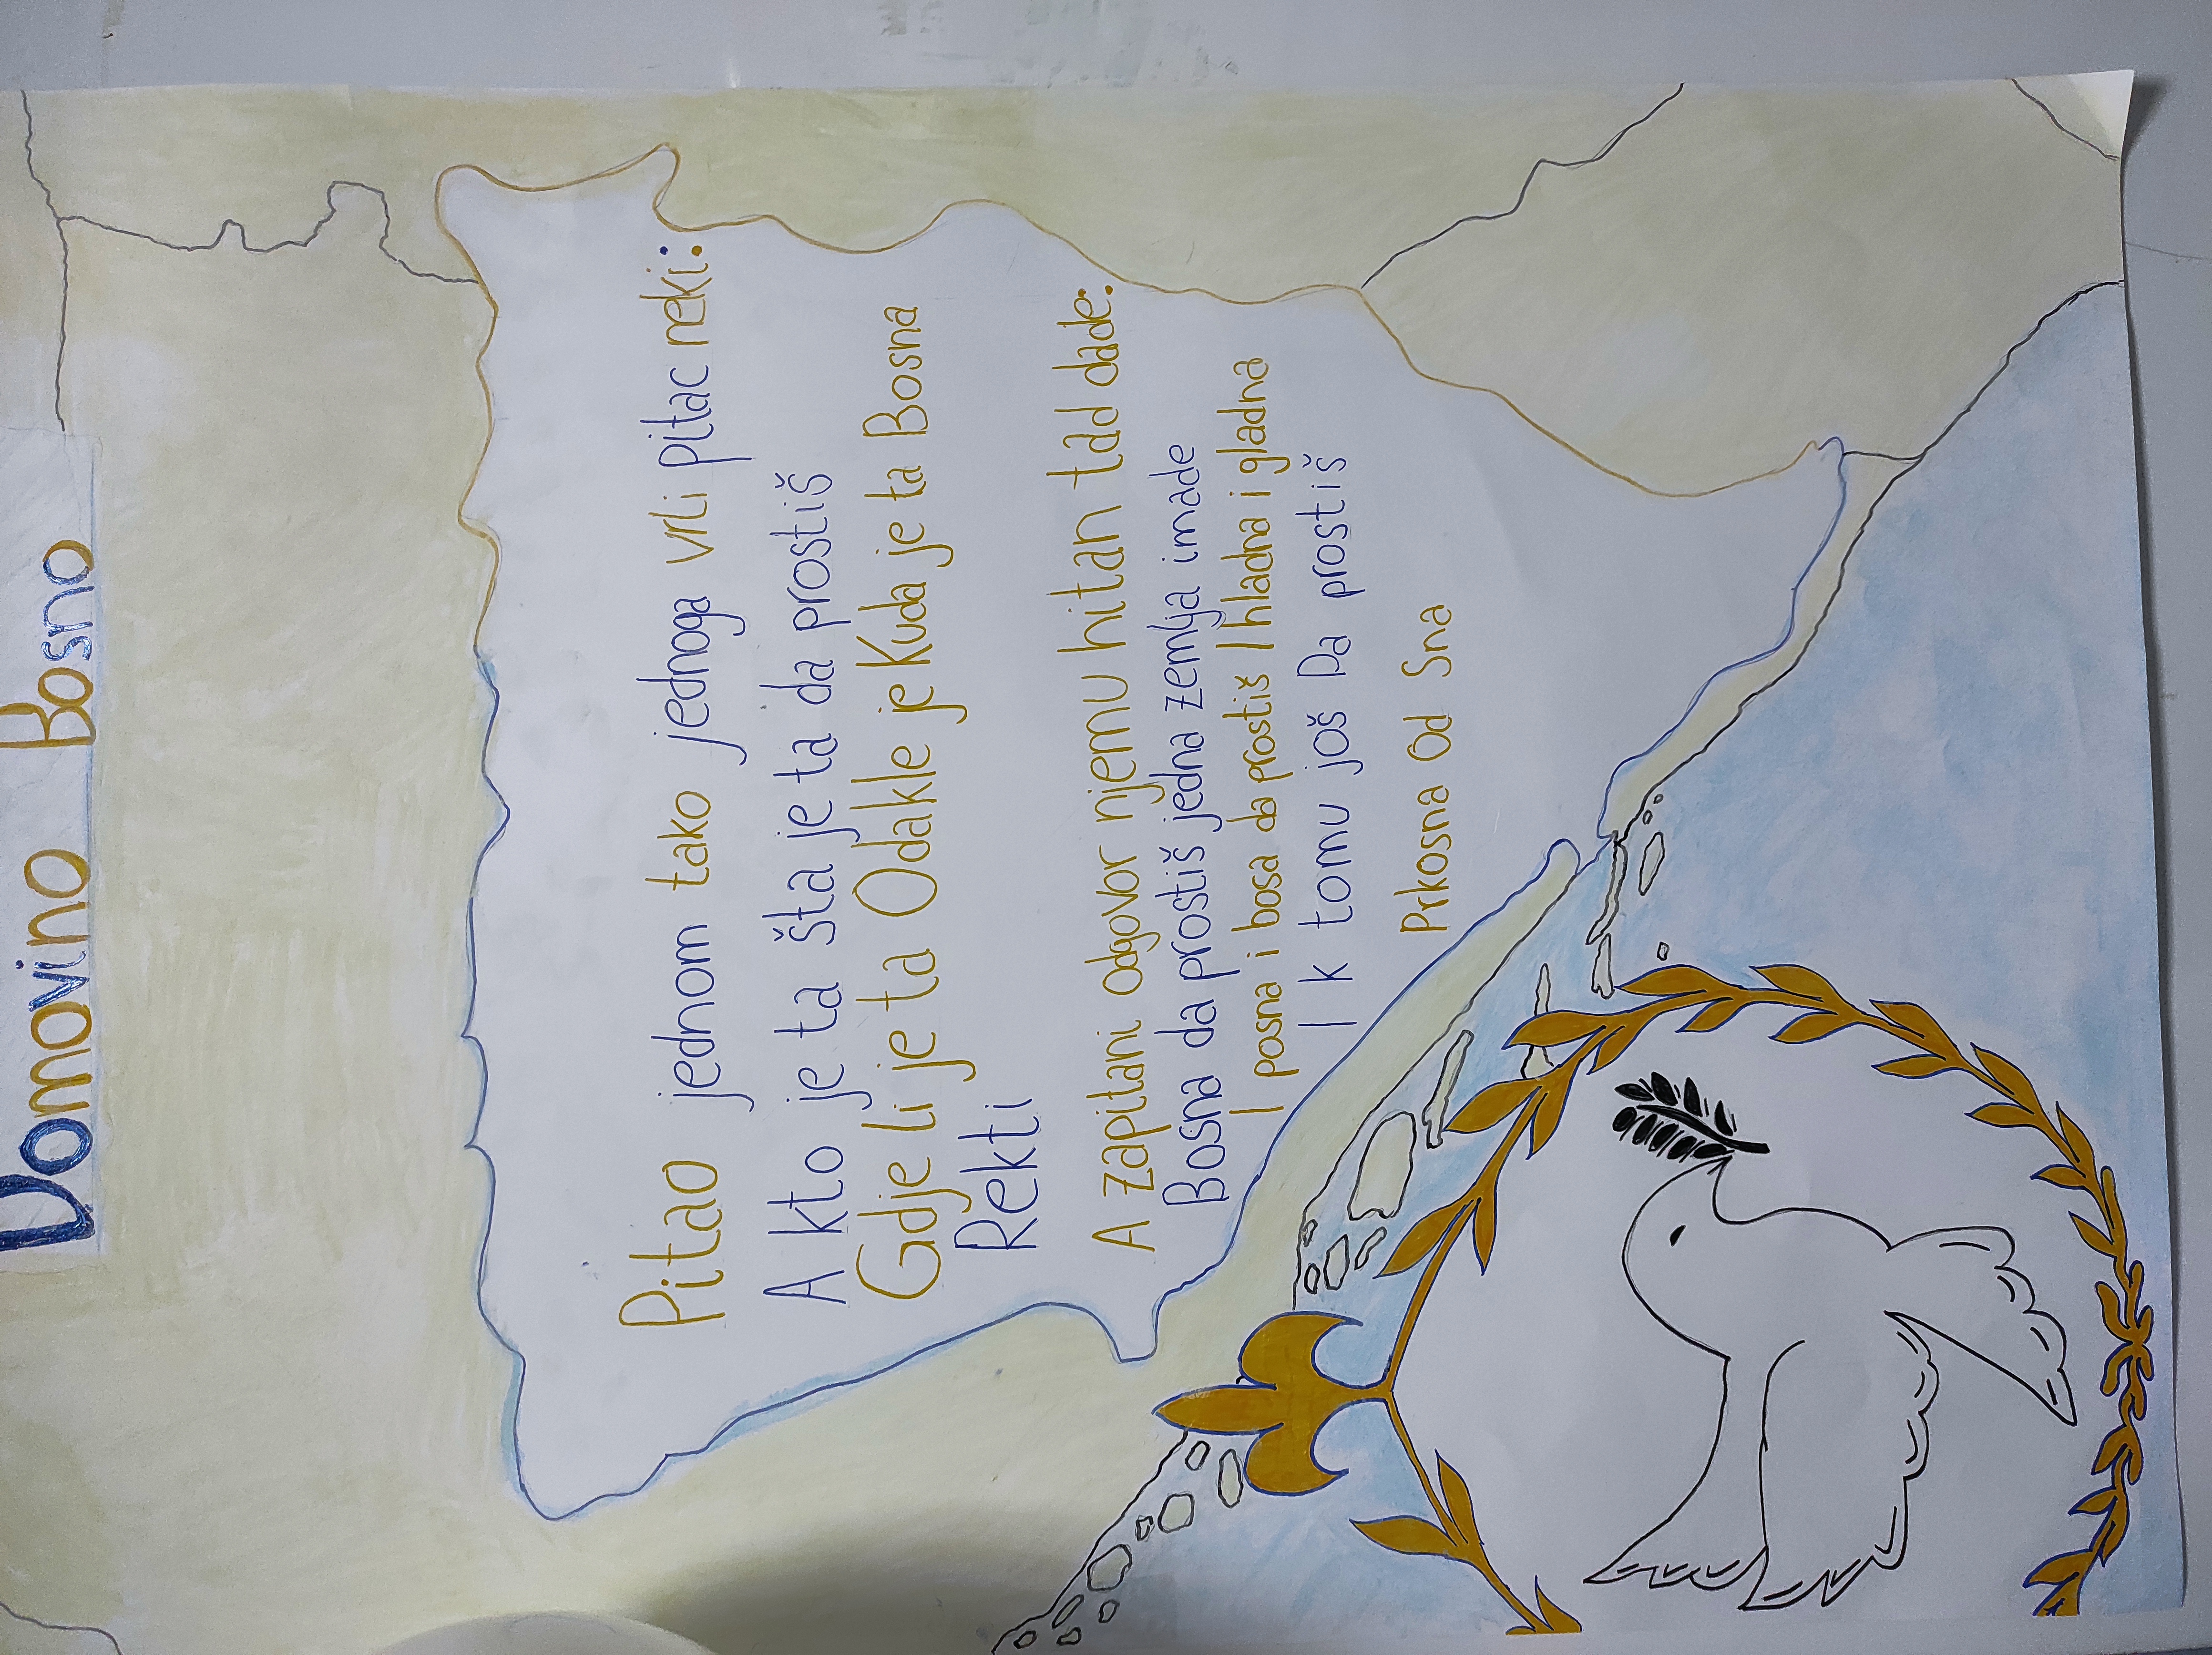 Domovino Bosno
Pitao jednom tako jednoga vrli pitac neki:
A kto je ta šta je ta da prostiš
Gdje li je ta Odakle je Kuda je ta Bosna
Rekti
A zapitani odgovor njemu hitan tad dade:
Bosna da prostiš jedna zemlja imade
I posna i bosa da prostiš I hladna i gladna
I k tomu još Da prostiš
Prkosna Od Sna